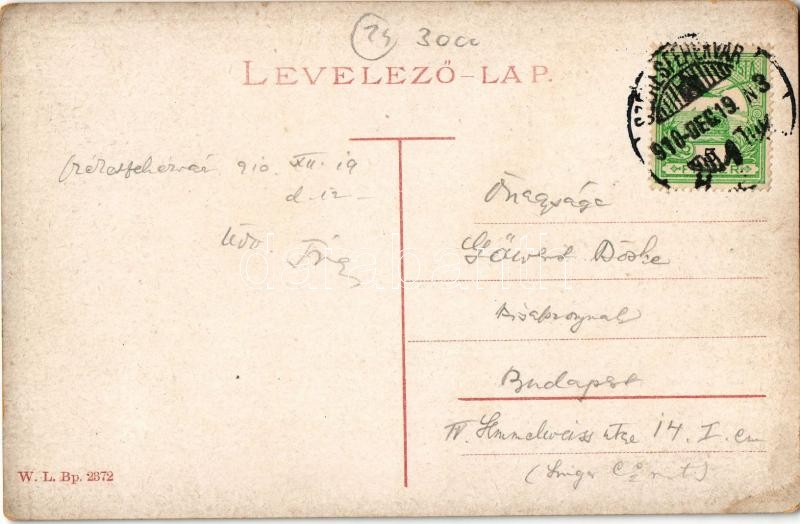 24 3000
LEVELEZŐ-LAP.
SZÉKESFEHÉRVÁR
910-DEC. 19. N3
Székesfehérvár 910. XII. 19
d. 12
Üdv.
Önagysága
Böske
Budapest
IV. Semmelweiss utca 14. I. em
(Singer
W. L. Bp. 2372